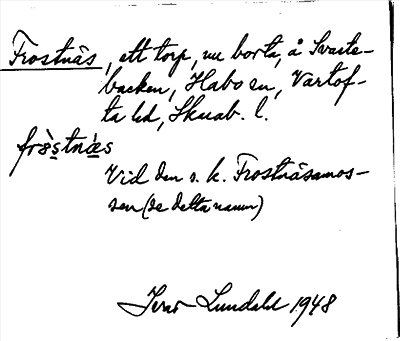 Frostnäs, ett torp, nu borta, å Svarte-
backen, Habo sn, Vartof-
ta hd, Skarab. l.
frò̀stnä̀s
Vid den s. k. Frostnäsamos-
sen (se detta namn)
Ivar Lundahl 1948